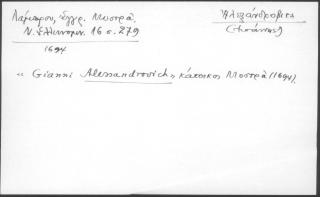 Λάμπρου, ἔγγρ. Μυστρᾶ.
Ν. Ἑλληνομν. 16 σ. 279
1694
Ἀλεξάνδροβιτς
(Ἰωάννης)
« Gianni Alessandrovich», κάτοικος Μυστρᾶ (1694).